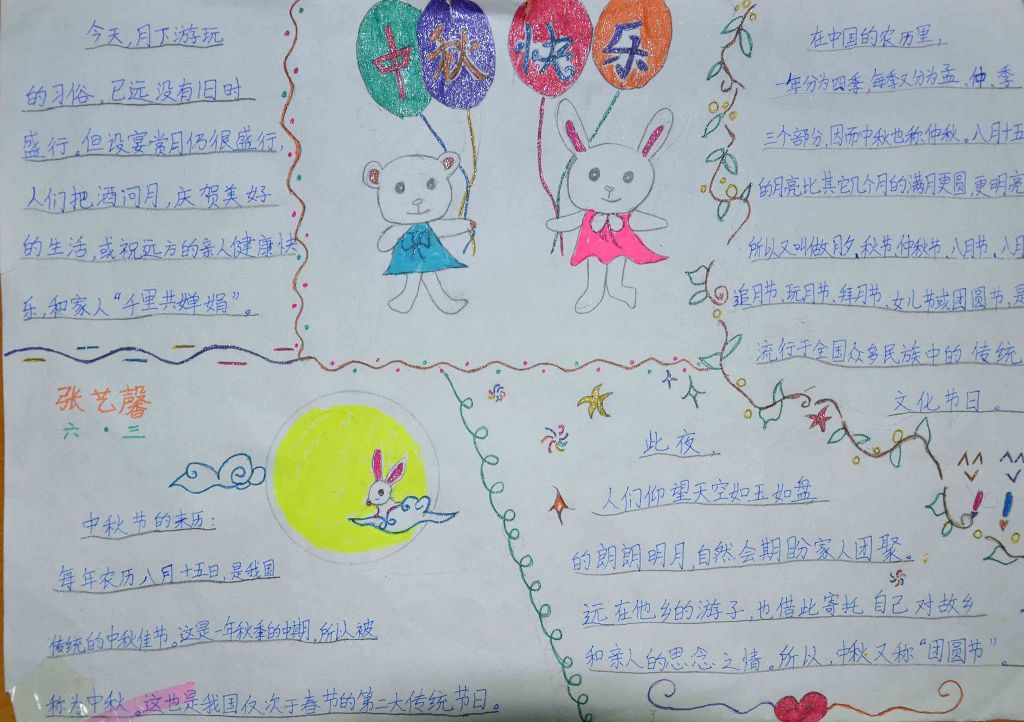 中秋快乐
今天,月下游玩
的习俗,已远没有旧时
盛行。但设宴赏月仍很盛行,
人们把酒问月,庆贺美好
的生活,或祝远方的亲人健康快
乐,和家人“千里共婵娟”。
在中国的农历里,
一年分为四季,每季又分为孟、仲、季
三个部分,因而中秋也称仲秋。八月十五
的月亮比其它几个月的满月更圆,更明亮
所以又叫做月夕,秋节,仲秋节、八月节、八月
追月节、玩月节、拜月节、女儿节或团圆节,是
流行于全国众多民族中的传统
文化节日。
张艺馨
六·三
中秋节的来历:
每年农历八月十五日,是我国
传统的中秋佳节。这是一年秋季的中期,所以被
称为中秋。这也是我国仅次于春节的第二大传统节日。
此夜,
人们仰望天空如玉如盘
的朗朗明月,自然会期盼家人团聚。
远在他乡的游子,也借此寄托自己对故乡
和亲人的思念之情。所以,中秋又称“团圆节”。